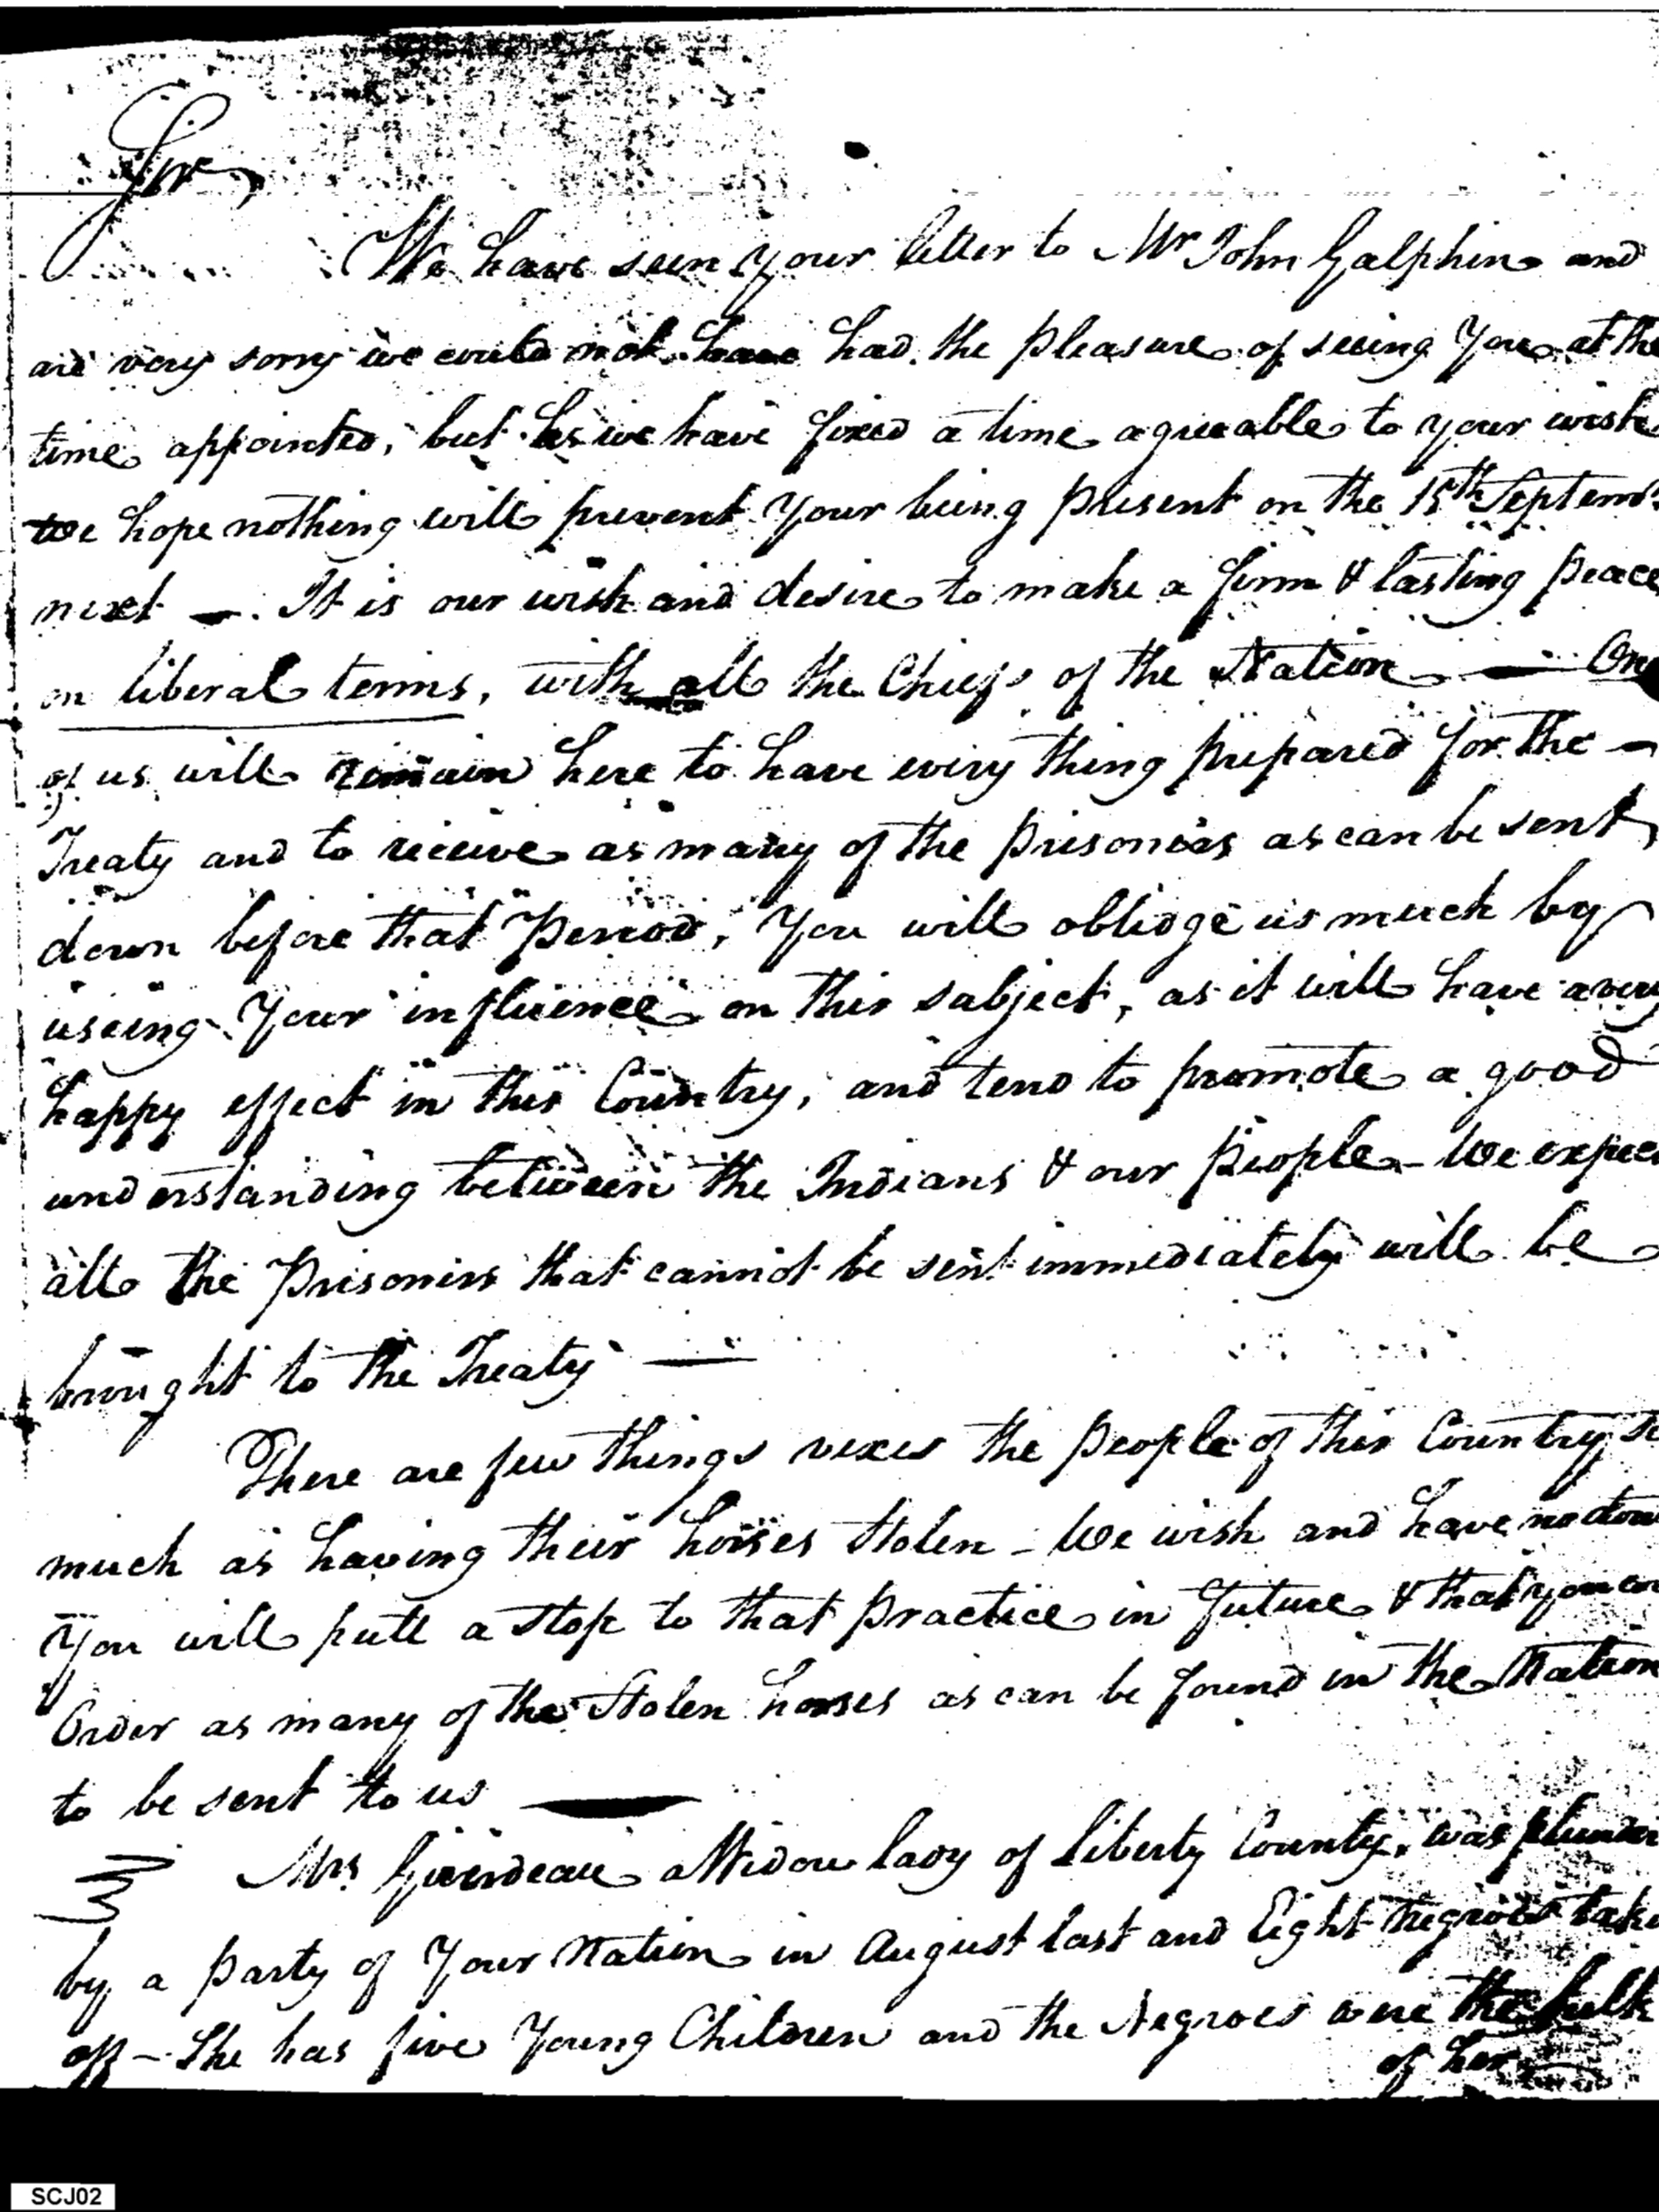 Sir,
We have seen your letter to Mr John Galphin and
are very sorry we could not have had the pleasure of seeing You at the
time appointed, but as we have fixed a time agreeable to your wish
we hope nothing will prevent Your being present on the 15th Septemr
next —. It is our wish and desire to make a firm & lasting peace
on liberal terms, with all the Chiefs of the Nation — One
of us will remain here to have every thing prepared for the —
Treaty and to receive as many of the prisoners as can be sent
down before that Period, You will oblidge us much by
useing Your influence on this subject, as it will have a very
happy effect in this Country, and tend to promote a good
understanding between the Indians & our people — We expec
all the Prisoners that cannot be sent immediately will be
brought to the Treaty —
There are few things vexes the people of this Country so
much as having their horses stolen — We wish and have no dou
You will putt a stop to that practice in future & that you
Order as many of the Stolen horses as can be found in the Nation
to be sent to us —
Mrs Girerdeau a Widow lady of Liberty County, was plunder
by a party of Your Nation in August last and Eight negroes take
off — She has five Young Children and the Negroes were the bulk
of her
SCJ02